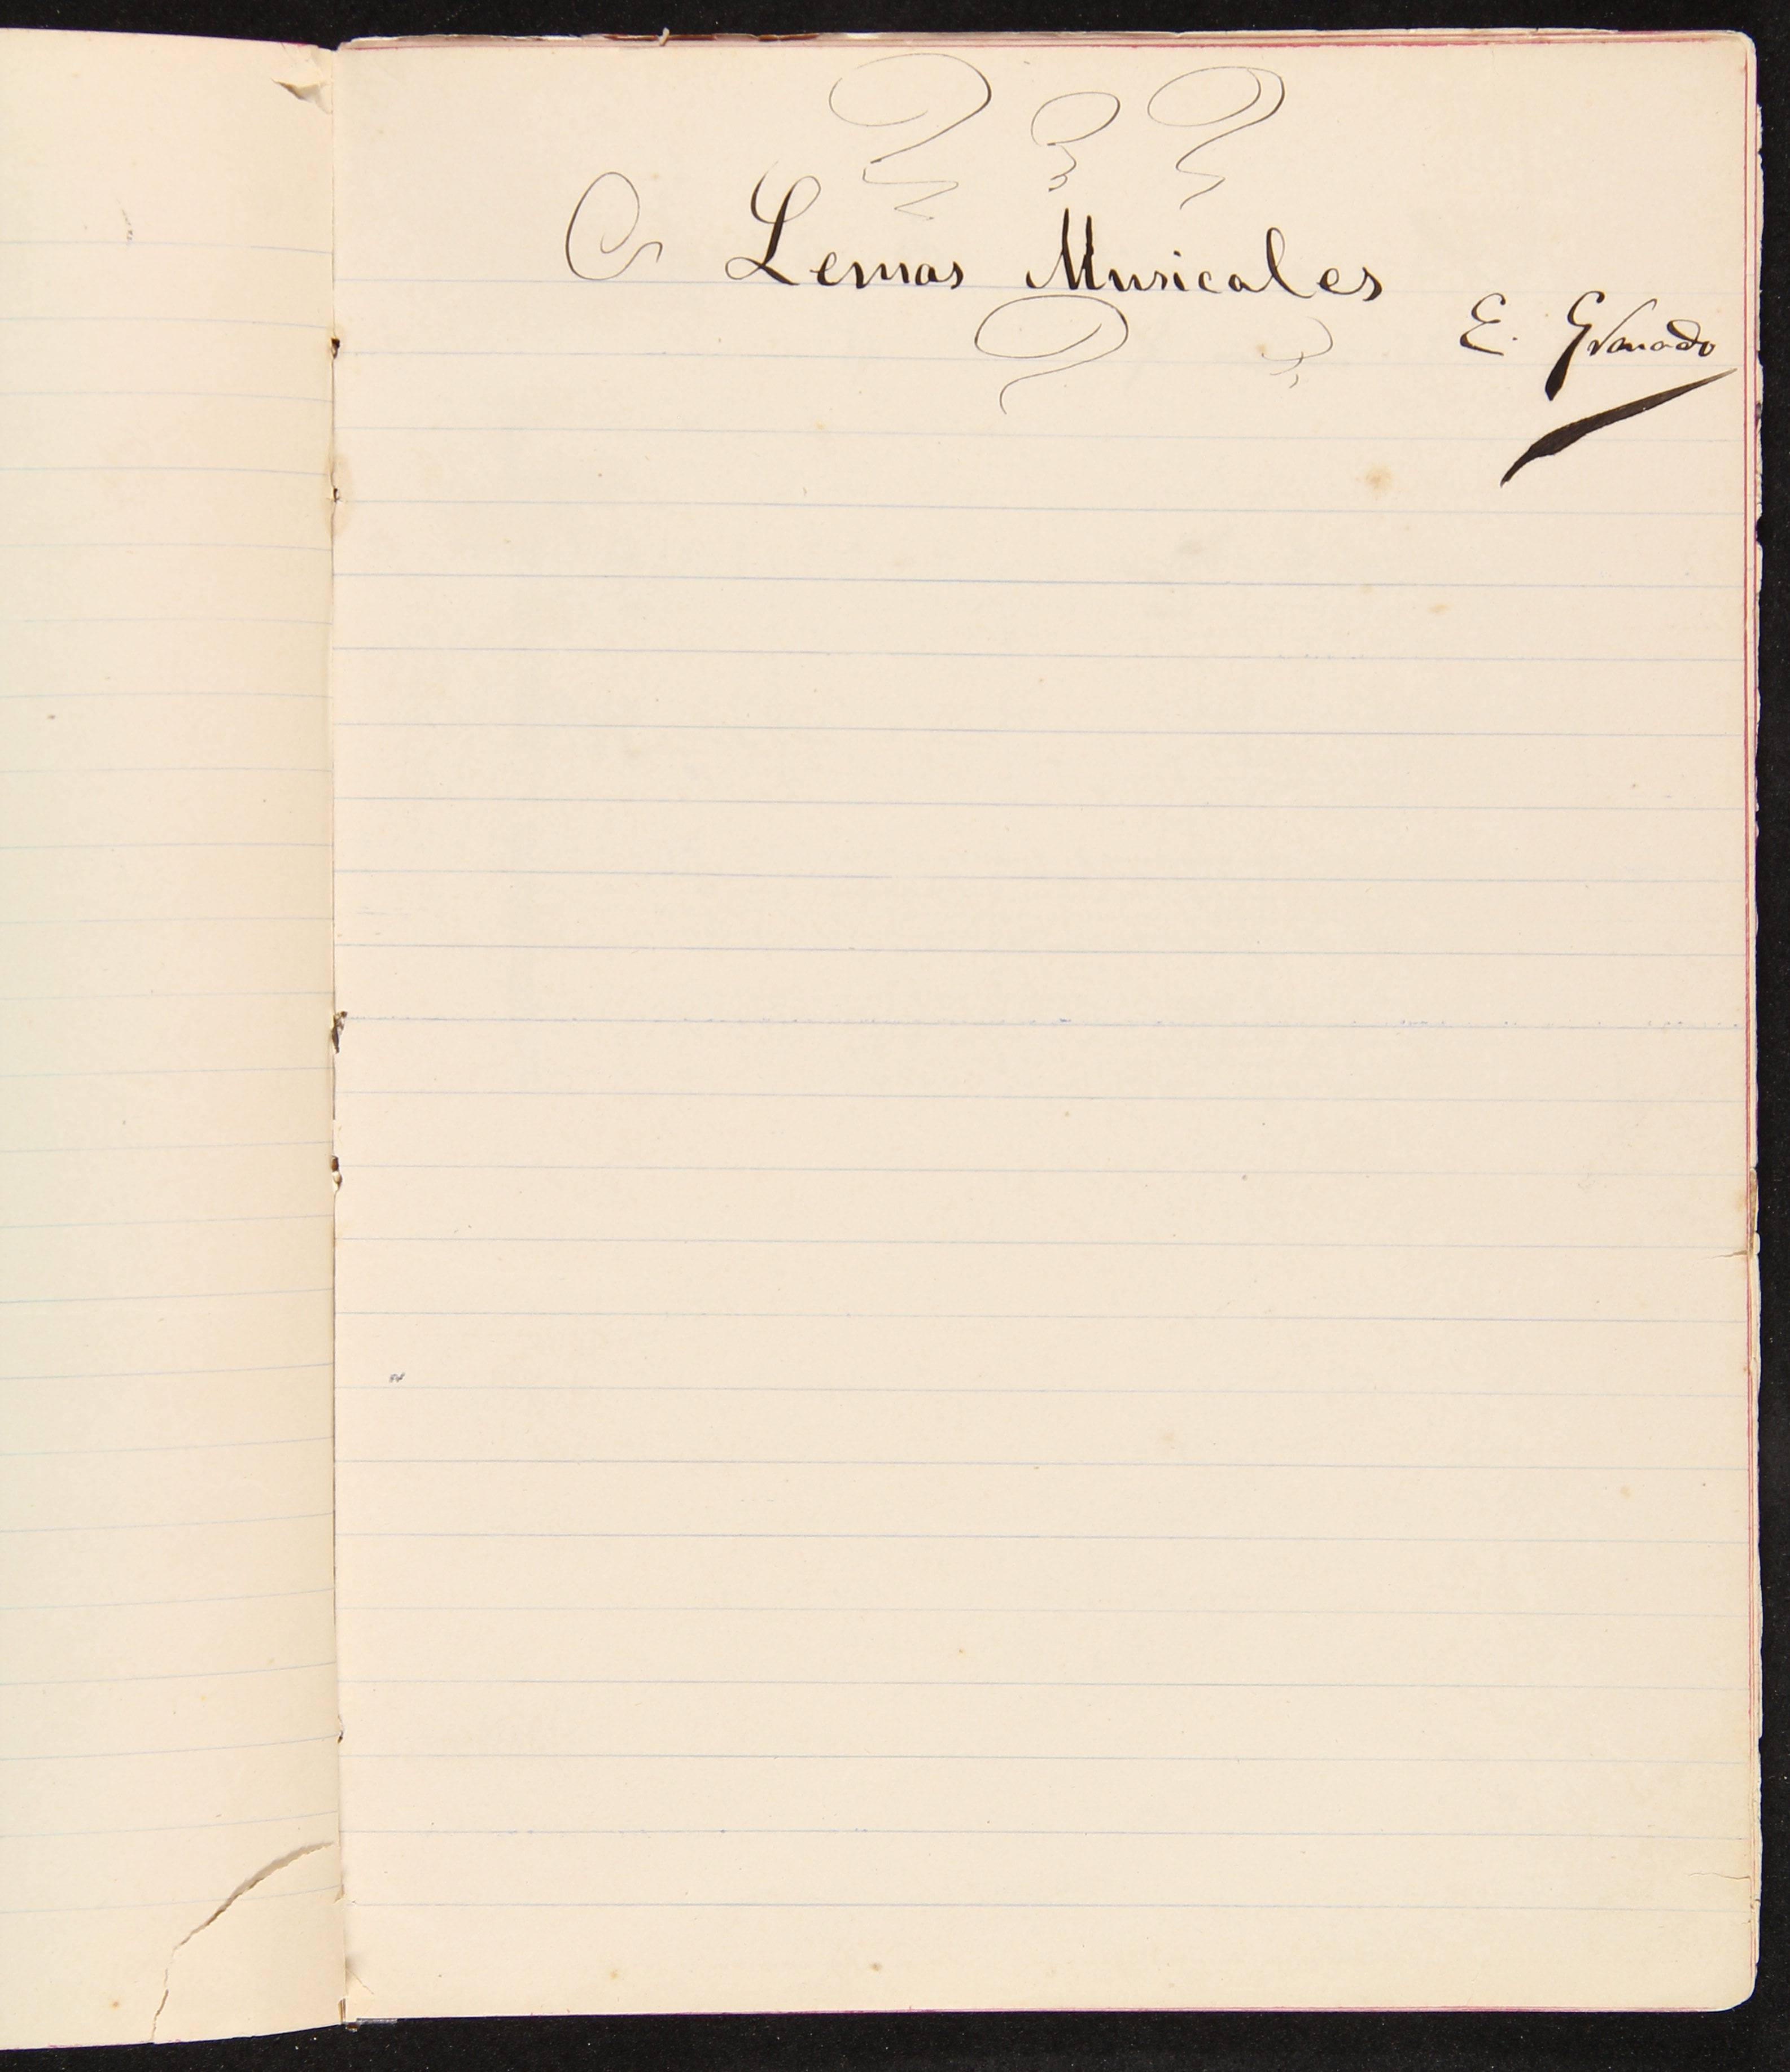 Lemas Musicales
E. Granado